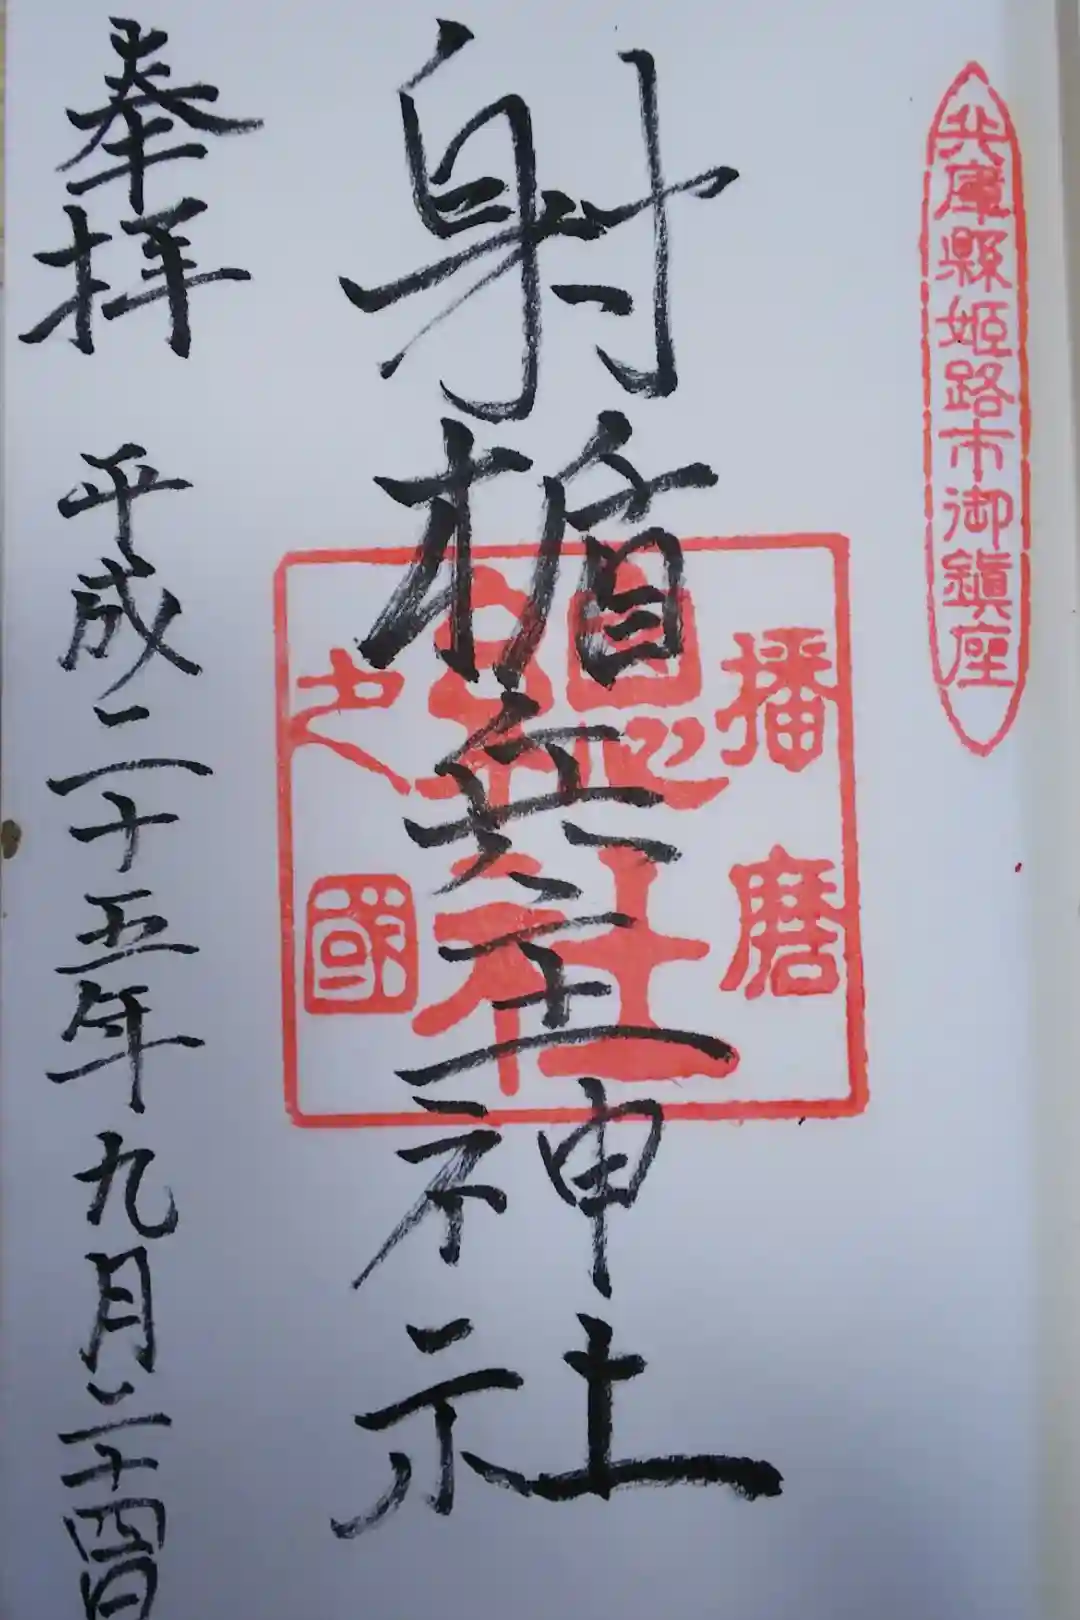 兵庫縣姫路市御鎮座
射楯兵主神社
播磨
総社
之國
奉拝
平成二十五年九月二十四日